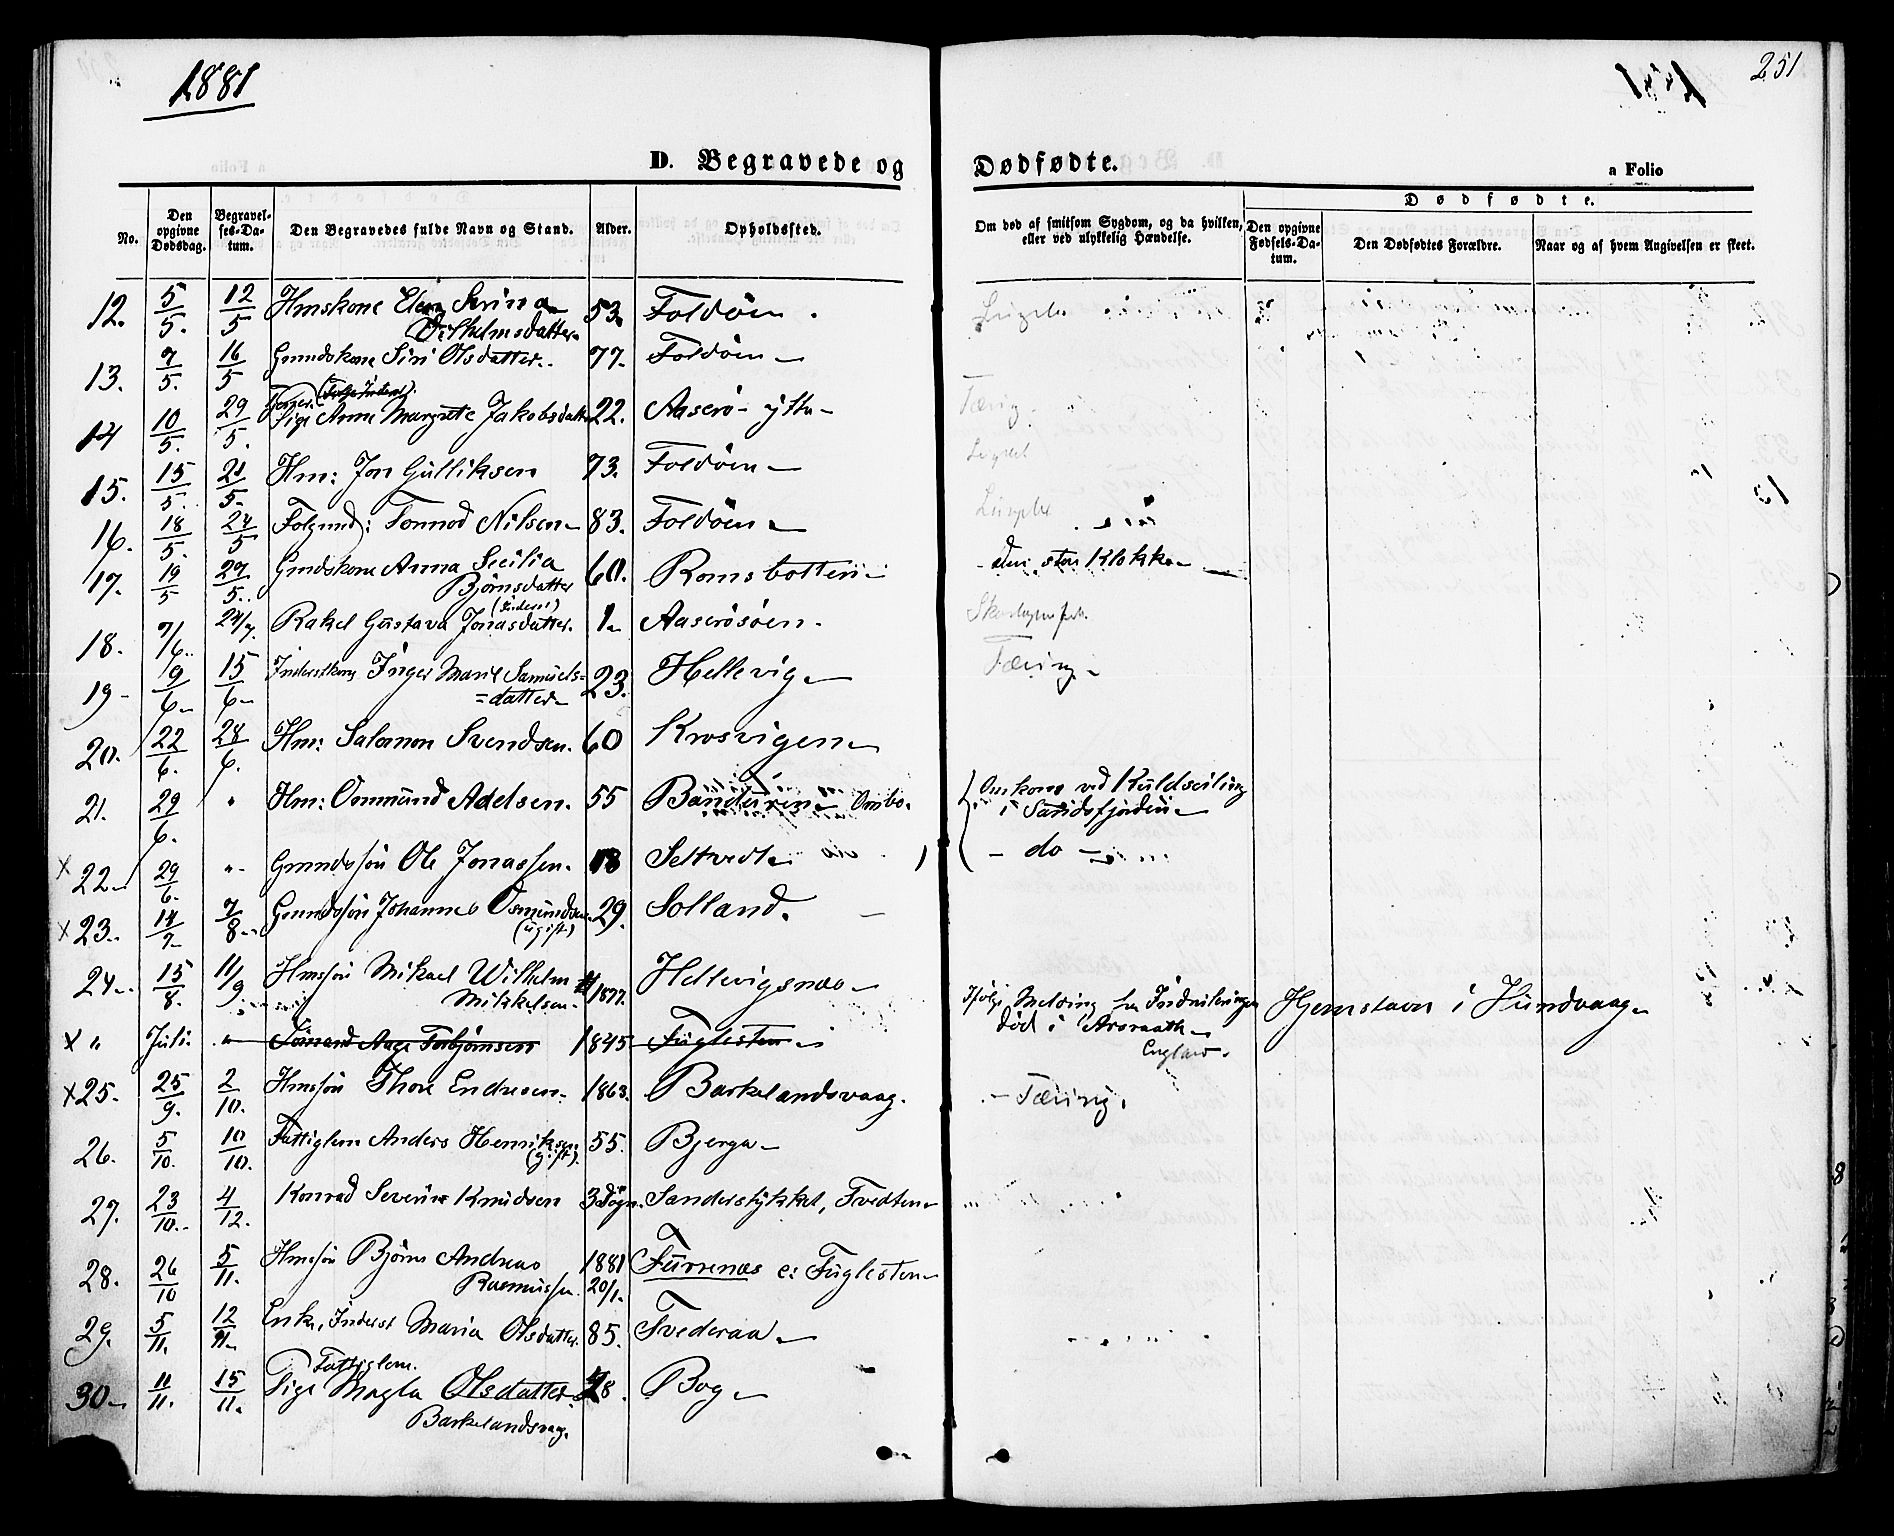 1881
251
D. Begravede og Dødfødte.
a Folio
No.
Den opgivne Dødsdag.
Begravelses-Datum.
Den Begravedes fulde Navn og Stand.
Alder.
Opholdssted.
Om død af smitsom Sygdom, og da hvilken, eller ved ulykkelig Hændelse.
Dødfødte.
Den opgivne Fødsels-Datum.
Den Dødfødtes Forældre.
Naar og af hvem Angivelsen er skeet.
12. 5/5. 12/5 Hmskone Elen Serina 53. Foldøen.
Vilhelmsdatter
13. 7/5. 16/5 Grmdskone Siri Olsdatter. 77. Foldøen
14 10/5. 29/5. Pige Anne Margrete Jakobsdatter 22. Aaserø ytter Tæring
15. 15/5. 21/5. Hm: Jon Gulliksen 73. Foldøen
16. 18/5. 24/5 Folgmd: Tormod Nilsen 83. Foldøen
17. 19/5 27/5. Gmdskone Anna Secilia 60. Romsbotten
Bjørnsdatter
den store Klokke
18. 7/6. 24/7. Rakel Gustava Jonasdatter. 1 Aaserøsøen. Skarlagensfeb.
19 9/6 15/6 Inderstkone Inger Marie Samuels= 23. Hellevig Tæring
=datter
20. 22/6. 28/6. Hm: Salomon Svendsen. 60 Krosvigen
21. 29/6. " Hm: Osmund Adelsen. 55 Bandüren Ombo. Omkom ved Kuldseiling
i Sandsfjorden
x 22. 29/6. " Grmdssøn Ole Jonassen. 18 Seltvedt do
x 23. 14/7 7/8 Grmdssøn Johannes Osmundsen 29. Solland.
(ugift)
24. 15/8. 11/9 Hmssøn Mikael Wilhelm 1877. Hellevigsnæs
Mikkelsen
x " Juli " Sømand Aage Torbjørnsen 1845 Fuglesten Ifølge Melding fra Indrulleringen Hjemstavn i Hundvaag
død i Arsraath
England.
x 25. 25/9. 2/10. Hmssøn Thore Endresen. 1863. Barkelandsvaag. Tæring.
26. 5/10. 10/10. Fattiglem Anders Henriksen 55. Bjerga
(gift).
27. 23/10. 4/12. Konrad Severin Knudsen 3 Døgn. Sanderstykket, Tvedten
28. 26/10 5/11. Hmssøn Bjørn Andreas 1881 Furrenæs e: Fuglesten
Rasmussen 20/1.
29. 5/11. 12/11. Enke, Inderst Maria Olsdatter. 85. Tvederaa
Fattiglem.
30. 11/11. 15/11. Pige Magla Olsdatter 28. Bog
Barkelandsvag.